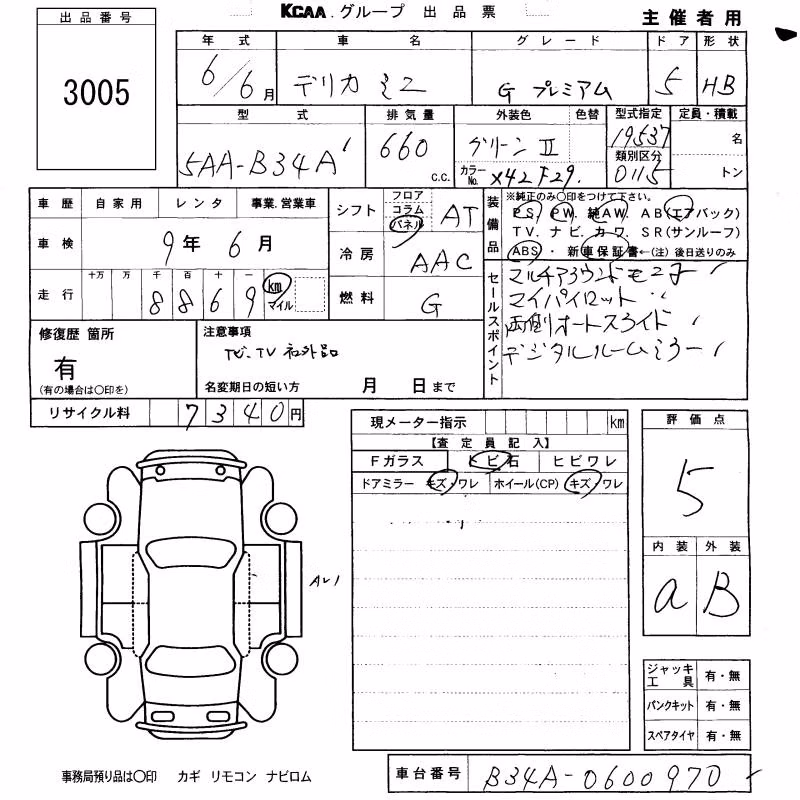 KCAA.グループ 出品票
主催者用
出品番号
3005
年式 車名 グレード ドア 形状
6/6月 デリカミニ G プレミアム 5 HB
型式 排気量 外装色 色替 型式指定 定員・積載
5AA-B34A 660 c.c. グリーンⅡ 19537 名
類別区分
カラーNo. X42 F29. 0115 トン
車歴 自家用 レンタ 事業.営業車
車検 9年 6月
走行 十万 万 千 百 十 一
8869 km マイル
シフト フロア コラム パネル AT
冷房 AAC
燃料 G
装備品
※純正のみ○印をつけて下さい。
PS. PW. 純AW. AB(エアバック)
TV. ナビ. カワ. SR(サンルーフ)
ABS・新車保証書←(注)後日送りのみ
セールスポイント
マルチアラウンドモニター
マイパイロット
両側オートスライド
デジタルルームミラー
修復歴 箇所
有
(有の場合は○印を)
注意事項
ナビ.TV 社外品
名変期日の短い方 月 日まで
リサイクル料 7340円
現メーター指示 km
【査定員記入】
Fガラス トビ石 ヒビワレ
ドアミラー キズ・ワレ ホイール(CP) キズ・ワレ
評価点
5
内装 外装
a B
AU1
ジャッキ工具 有・無
パンクキット 有・無
スペアタイヤ 有・無
事務局預り品は○印 カギ リモコン ナビロム
車台番号 B34A-0600970